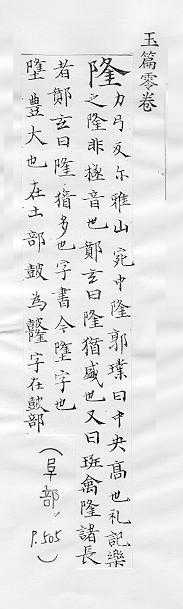 玉篇零卷
隆力弓反尒雅山宛中隆郭璞曰中央髙也礼記樂
之隆非極音也鄭玄曰隆猶盛也又曰班禽隆諸長
者鄭玄曰隆猶多也字書今字也
豊大也在土部鼓為字在鼓部
(阜部, P.505)